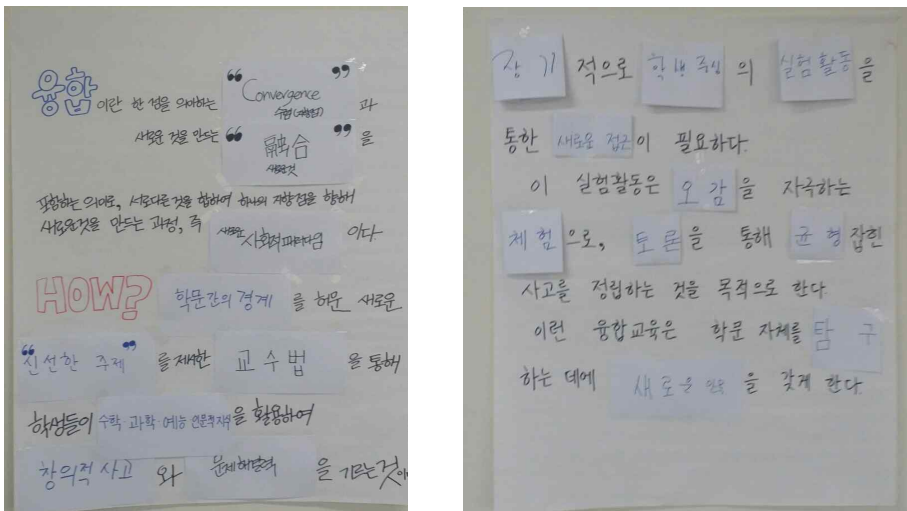 융합이란 한 점을 의미하는 “Convergence 수렴(수렴점)” 과
새로운 것을 만드는 “融合 새로운것” 을
포함하는 의미로, 서로다른것을 합하여 하나의 지향점을 향해
새로운것을 만드는 과정, 즉 새로운 사회적패러다임 이다.
HOW? 학문간의 경계 를 허문 새로운
“신선한 주제” 를 제시한 교수법 을 통해
학생들이 수학·과학·예능 인문학지식 을 활용하여
창의적 사고 와 문제해결력 을 기르는것이
장기적으로 학생 중심의 실험활동을
통한 새로운 접근이 필요하다.
이 실험활동은 오감을 자극하는
체험으로, 토론을 통해 균형잡힌
사고를 정립하는 것을 목적으로 한다
이런 융합교육은 학문 자체를 탐구
하는 데에 새로운 을 갖게 한다.